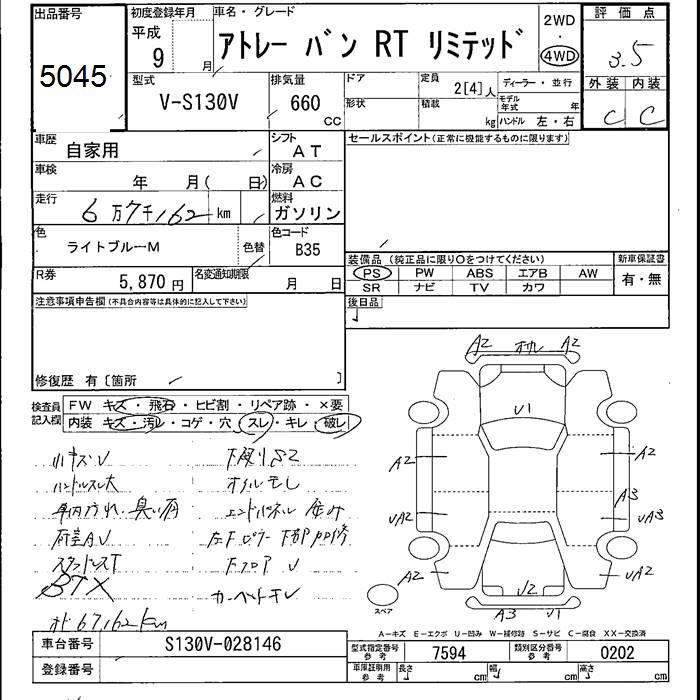 出品番号
5045
初度登録年月
平成
9
月
車名・グレード
アトレー バン RT リミテッド
2WD
・
4WD
評価点
3.5
外装 内装
C C
型式
V-S130V
排気量
660
CC
ドア
形状
定員
2[4]人
積載
kg
ディーラー・並行
モデル年式
年
ハンドル 左・右
車歴
自家用
シフト
AT
車検
年 月( 日)
冷房
AC
走行
6万7千162 km
燃料
ガソリン
色
ライトブルーM
色替
色コード
B35
R券
5,870円
名変通知期限
月 日
セールスポイント(正常に機能するものに限ります)
装備品(純正品に限り○をつけてください)
PS PW ABS エアB AW
SR ナビ TV カワ
新車保証書
有・無
後日品
注意事項申告欄(不具合内容等は具体的に記入して下さい)
修復歴 有〔箇所 〕
検査員記入欄
FW キズ・飛石・ヒビ割・リペア跡・×要
内装 キズ・汚レ・コゲ・穴・スレ・キレ・破レ
小キズ U
ハンドルスレ大
車内汚れ・臭い有
荷室AU
BTX
下廻りS2
オイルモレ
エンドパネル
Fフロア U
カーペットキレ
67,162km
A2 A2
U1
A2 A2
A3
UA2 UA3
A2 UA2
U2
A3 U1
スペア
A-キズ E-エクボ U-凹み W-補修跡 S-サビ C-腐食 XX-交換済
車台番号
S130V-028146
登録番号
型式指定番号
参考
7594
類別区分番号
参考
0202
車庫証明用
参考
長さ cm 幅 cm 高さ cm